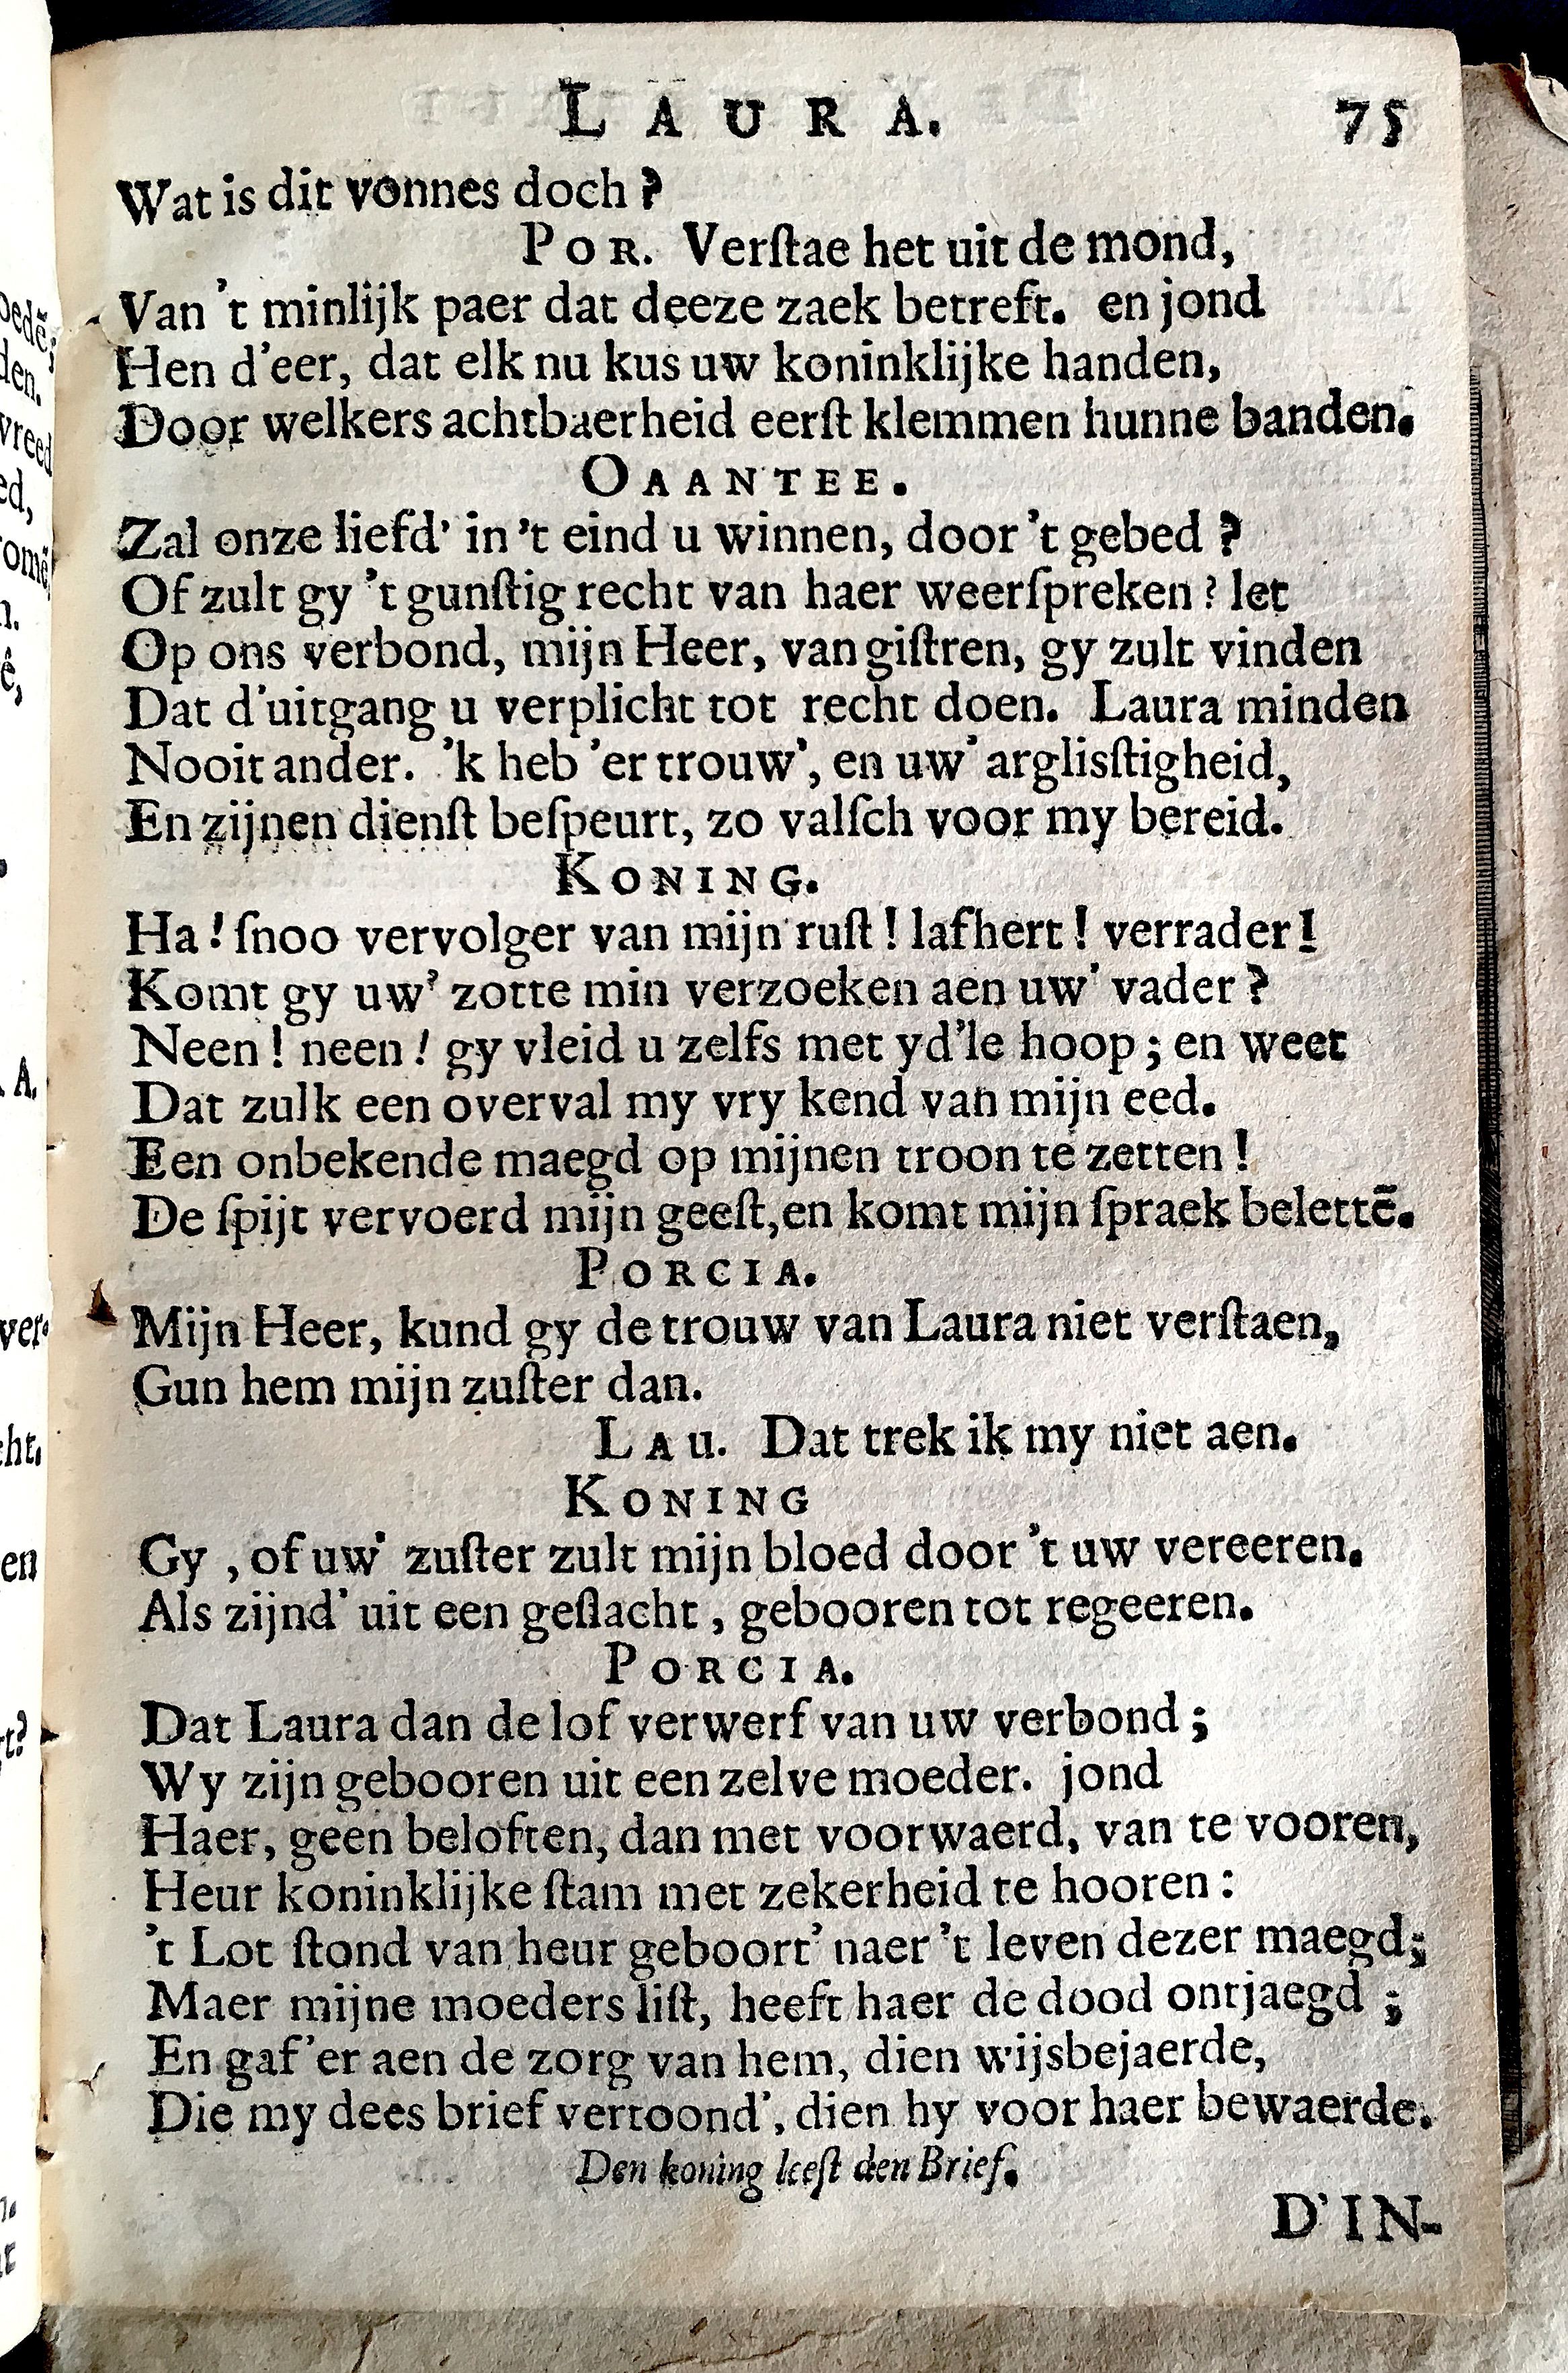 LAURA. 75
Wat is dit vonnes doch?
POR. Verſtae het uit de mond,
Van 't minlijk paer dat deeze zaek betreft. en jond
Hen d'eer, dat elk nu kus uw koninklijke handen,
Door welkers achtbaerheid eerſt klemmen hunne banden.
OAANTEE.
Zal onze liefd' in 't eind u winnen, door 't gebed?
Of zult gy 't gunſtig recht van haer weerſpreken? let
Op ons verbond, mijn Heer, van giſtren, gy zult vinden
Dat d'uitgang u verplicht tot recht doen. Laura minden
Nooit ander. 'k heb 'er trouw', en uw' arglisſtigheid,
En zijnen dienſt beſpeurt, zo valſch voor my bereid.
KONING.
Ha! ſnoo vervolger van mijn ruſt! lafhert! verrader!
Komt gy uw' zotte min verzoeken aen uw' vader?
Neen! neen! gy vleid u zelfs met yd'le hoop; en weet
Dat zulk een overval my vry kend van mijn eed.
Een onbekende maegd op mijnen troon te zetten!
De ſpijt vervoerd mijn geeſt, en komt mijn ſpraek belettē.
PORCIA.
Mijn Heer, kund gy de trouw van Laura niet verſtaen,
Gun hem mijn zuſter dan.
LAU. Dat trek ik my niet aen.
KONING
Gy, of uw' zuſter zult mijn bloed door 't uw vereeren.
Als zijnd' uit een geſlacht, gebooren tot regeeren.
PORCIA.
Dat Laura dan de lof verwerf van uw verbond;
Wy zijn gebooren uit een zelve moeder. jond
Haer, geen beloften, dan met voorwaerd, van te vooren,
Heur koninklijke ſtam met zekerheid te hooren:
't Lot ſtond van heur geboort' naer 't leven dezer maegd;
Maer mijne moeders liſt, heeft haer de dood ontjaegd;
En gaf 'er aen de zorg van hem, dien wijsbejaerde,
Die my dees brief vertoond', dien hy voor haer bewaerde.
Den koning leeſt den Brief.
D'IN-